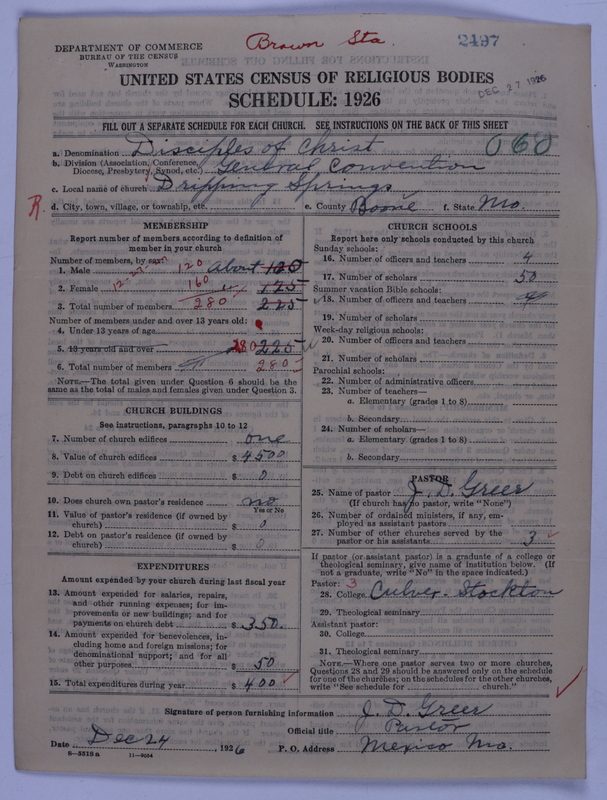 DEPARTMENT OF COMMERCE
BUREAU OF THE CENSUS
WASHINGTON
Brown Sta.
2497
DEC 27 1926
UNITED STATES CENSUS OF RELIGIOUS BODIES
SCHEDULE: 1926
FILL OUT A SEPARATE SCHEDULE FOR EACH CHURCH. SEE INSTRUCTIONS ON THE BACK OF THIS SHEET
a. Denomination Disciples of Christ 060
b. Division (Association, Conference, Diocese, Presbytery, Synod, etc.) General Convention
c. Local name of church Dripping Springs
R. d. City, town, village, or township, etc. e. County Boone f. State Mo.
MEMBERSHIP
Report number of members according to definition of
member in your church
Number of members, by sex:
1. Male 120 about
2. Female 160 125
3. Total number of members 280 225
12-27-
Number of members under and over 13 years old:
4. Under 13 years of age
5. 13 years old and over 280 225
6. Total number of members 280
NOTE.—The total given under Question 6 should be
the same as the total of males and females given under Question 3.
CHURCH BUILDINGS
See instructions, paragraphs 10 to 12
7. Number of church edifices one
8. Value of church edifices $ 4500
9. Debt on church edifices $ 0
10. Does church own pastor's residence no
Yes or No
11. Value of pastor's residence (if owned by
church) $ 0
12. Debt on pastor's residence (if owned by
church) $ 0
EXPENDITURES
Amount expended by your church during last fiscal year
13. Amount expended for salaries, repairs,
and other running expenses; for im-
provements or new buildings; and for
payments on church debt $ 350.
14. Amount expended for benevolences, in-
cluding home and foreign missions; for
denominational support; and for all
other purposes $ 50
15. Total expenditures during year $ 400
CHURCH SCHOOLS
Report here only schools conducted by this church
Sunday schools:
16. Number of officers and teachers 4
17. Number of scholars 50
Summer vacation Bible schools:
18. Number of officers and teachers
19. Number of scholars
Week-day religious schools:
20. Number of officers and teachers
21. Number of scholars
Parochial schools:
22. Number of administrative officers
23. Number of teachers—
a. Elementary (grades 1 to 8)
b. Secondary
24. Number of scholars—
a. Elementary (grades 1 to 8)
b. Secondary
PASTOR
25. Name of pastor J. D. Greer
(If church has no pastor, write "None")
26. Number of ordained ministers, if any, em-
ployed as assistant pastors
27. Number of other churches served by the
pastor or his assistants 3
If pastor (or assistant pastor) is a graduate of a college or
theological seminary, give name of institution below. (If
not a graduate, write "No" in the space indicated.)
Pastor: 3
28. College Culver-Stockton
29. Theological seminary
Assistant pastor:
30. College
31. Theological seminary
NOTE.—Where one pastor serves two or more churches,
Questions 28 and 29 should be answered only on the schedule
for one of the churches; on the schedules for the other churches,
write "See schedule for church."
Signature of person furnishing information J. D. Greer
Official title Pastor
Date Dec 24, 1926 P. O. Address Mexico Mo.
8—5518a 11—9034